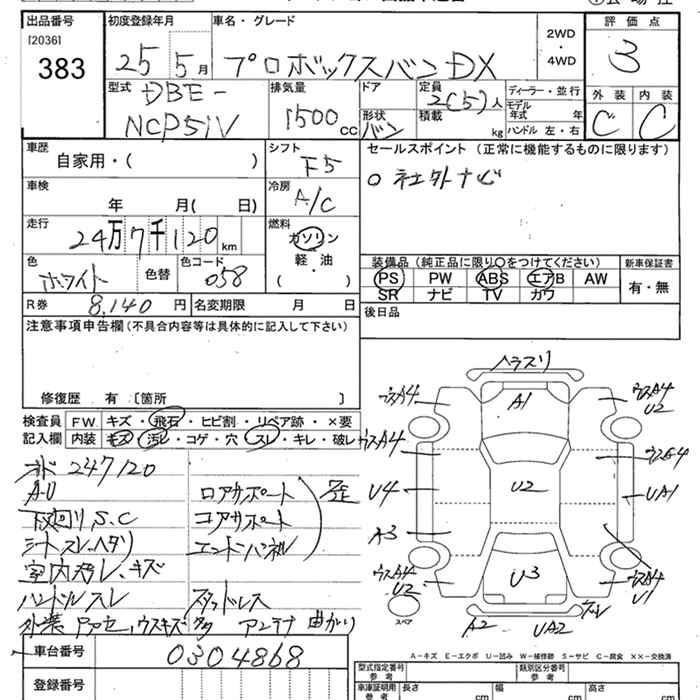 出品番号
[2036]
383
初度登録年月
25 5月
車名・グレード
プロボックスバン DX
2WD
・
4WD
評価点
3
型式
DBE-
NCP51V
排気量
1500 cc
ドア
形状
バン
定員
2(5)人
積載
kg
ディーラー・並行
モデル
年式 年
ハンドル 左・右
外装
C
内装
C
車歴
自家用・( )
シフト
F5
セールスポイント (正常に機能するものに限ります)
○ 社外ナビ
車検
年 月( 日)
冷房
A/C
走行
24万7千120 km
燃料
ガソリン
軽・油
( )
色
ホワイト
色替
色コード
058
装備品 (純正品に限り○をつけてください)
PS PW ABS エアB AW
SR ナビ TV ガワ
新車保証書
有・無
R券 8,140 円
名変期限 月 日
後日品
注意事項申告欄 (不具合内容等は具体的に記入して下さい)
修復歴 有 〔箇所 〕
検査員
記入欄
FW キズ・飛石・ヒビ割・リペア跡・×要
内装 キズ・汚レ・コゲ・穴・スレ・キレ・破レ
247120
A・U
下回り S.C
シートスレ、ヘタリ
室内汚レ、キズ
ハンドルスレ
ロアサポート
コアサポート
エンドパネル
歪
スタッドレス
ウスキズ多 アンテナ曲がり
A1
ウスA4
ウスA4
U2
ウスA4
U4
A3
U2
UA1
ウスA4
U2
U3
ウスA4
U1
A2
UA2
スペア
A-キズ E-エクボ U-凹み W-補修跡 S-サビ C-腐食 XX-交換済
車台番号
0304868
登録番号
型式指定番号
参考
類別区分番号
参考
車庫証明用
参考
長さ cm
幅 cm
高さ cm